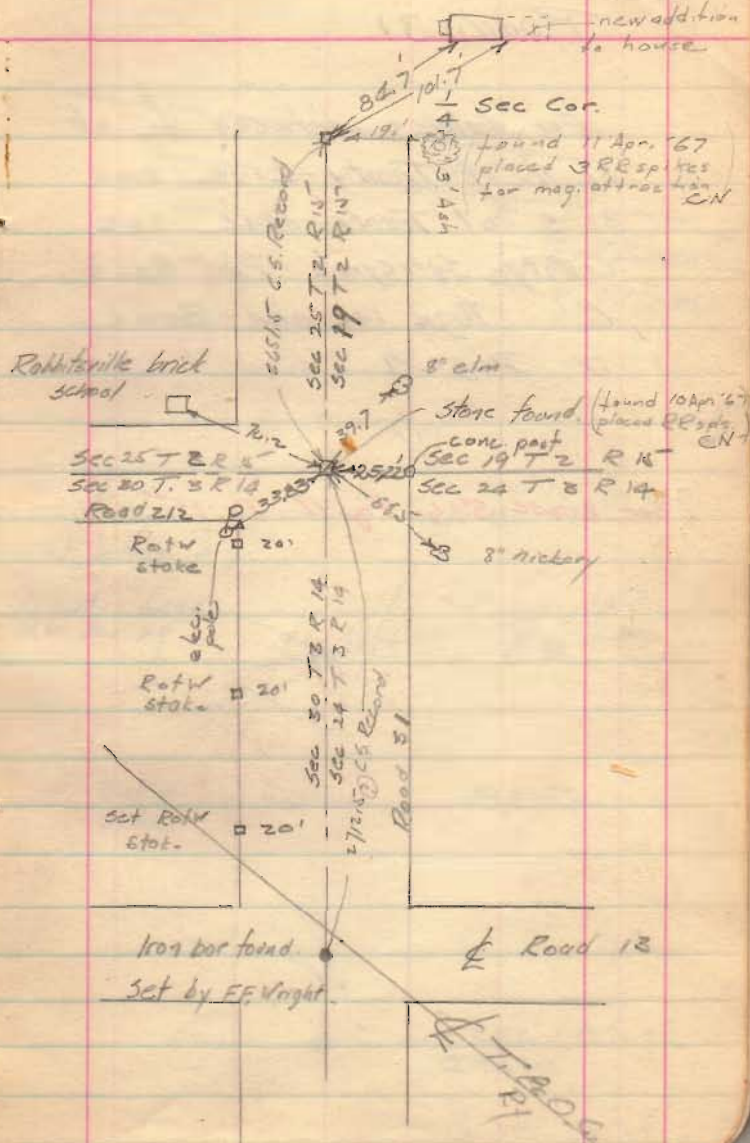 new addition
to house
101.7'
1/4 Sec Cor.
19.'
found 11 Apr. '67
placed 3 RR spikes
for mag. attraction
CN
3' Ash
C.S. Record
Sec 25 T 2 R 15
Sec 19 T 2 R 15
8" elm
Rabbitsville brick
school
39.7
stone found.
found 10 Apr '67
placed RR spk.
CN
conc post
Sec 25 T 2 R 15
Sec 19 T 2 R 15
Sec 30 T. 3 R 14
Sec 24 T 3 R 14
33.83
Road 212
RofW
stake
20'
8" hickory
elec.
pole
RofW
stak.
20'
Sec 30 T 3 R 14
Sec 24 T 3 R 14
2712.5 (?) C.S. Record
Road 31
set RofW
stak.
20'
Iron bar found.
Set by F.F. Wright.
℄ Road 13
℄